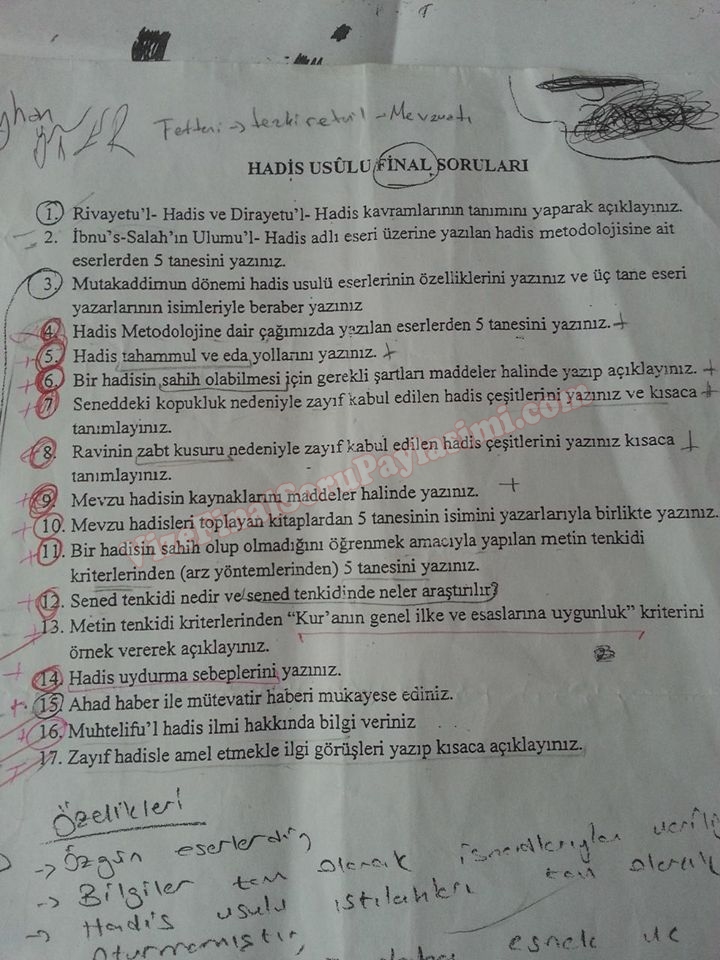 Fetteni → tezkiretül - Mevzuatı
HADİS USÛLU FİNAL SORULARI
1. Rivayetu'l- Hadis ve Dirayetu'l- Hadis kavramlarının tanımını yaparak açıklayınız.
2. İbnu's-Salah'ın Ulumu'l- Hadis adlı eseri üzerine yazılan hadis metodolojisine ait
eserlerden 5 tanesini yazınız.
3. Mutakaddimun dönemi hadis usulü eserlerinin özelliklerini yazınız ve üç tane eseri
yazarlarının isimleriyle beraber yazınız
4. Hadis Metodolojine dair çağımızda yazılan eserlerden 5 tanesini yazınız. +
5. Hadis tahammul ve eda yollarını yazınız. +
6. Bir hadisin sahih olabilmesi için gerekli şartları maddeler halinde yazıp açıklayınız. +
7. Seneddeki kopukluk nedeniyle zayıf kabul edilen hadis çeşitlerini yazınız ve kısaca +
tanımlayınız.
8. Ravinin zabt kusuru nedeniyle zayıf kabul edilen hadis çeşitlerini yazınız kısaca +
tanımlayınız.
9. Mevzu hadisin kaynaklarını maddeler halinde yazınız. +
10. Mevzu hadisleri toplayan kitaplardan 5 tanesinin isimini yazarlarıyla birlikte yazınız.
11. Bir hadisin sahih olup olmadığını öğrenmek amacıyla yapılan metin tenkidi
kriterlerinden (arz yöntemlerinden) 5 tanesini yazınız.
12. Sened tenkidi nedir ve sened tenkidinde neler araştırılır?
13. Metin tenkidi kriterlerinden "Kur'anın genel ilke ve esaslarına uygunluk" kriterini
örnek vererek açıklayınız.
14. Hadis uydurma sebeplerini yazınız.
15. Ahad haber ile mütevatir haberi mukayese ediniz.
16. Muhtelifu'l hadis ilmi hakkında bilgi veriniz
17. Zayıf hadisle amel etmekle ilgi görüşleri yazıp kısaca açıklayınız.
VizeFinalSoruPaylasimi.com
Özelikleri
→ Özgün eserlerdir
→ Bilgiler tam olarak isnadlarıyla
→ Hadis usulu ıstılahları tam olarak
oturmamıştır,
esnek ve